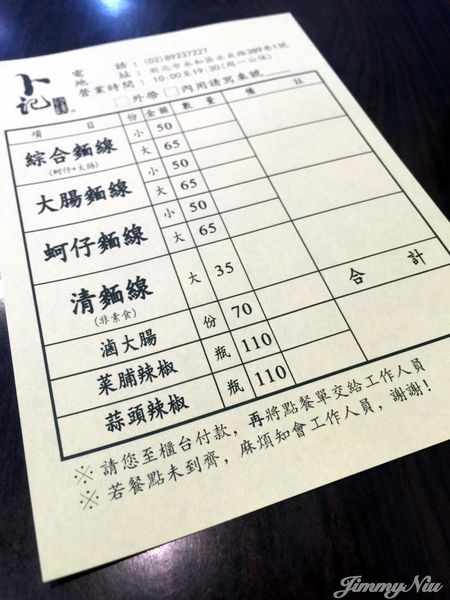 卜記
電 話：(02)89237227
地 址：新北市永和區永貞路389巷1號
營業時間：10:00至19:30(周一公休)
□外帶 □內用請寫桌號____
項 目 份 金額 數量 備 註
綜合麵線 小 50
(蚵仔+大腸) 大 65
大腸麵線 小 50
大 65
蚵仔麵線 小 50
大 65
清麵線 大 35
(非素食)
合 計
滷大腸 份 70
菜脯辣椒 瓶 110
蒜頭辣椒 瓶 110
※請您至櫃台付款，再將點餐單交給工作人員
※若餐點未到齊，麻煩知會工作人員，謝謝！
JimmyNiu